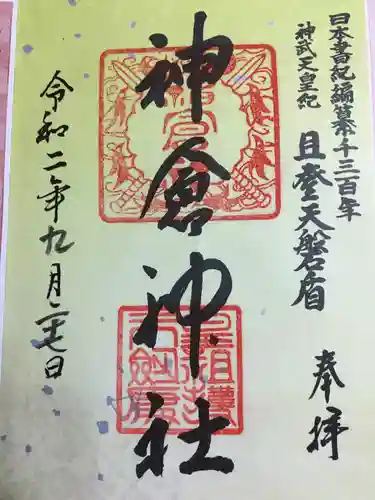 日本書紀編纂千三百年
神武天皇紀
且登天磐盾
奉拝
神倉神社
令和二年九月二十七日